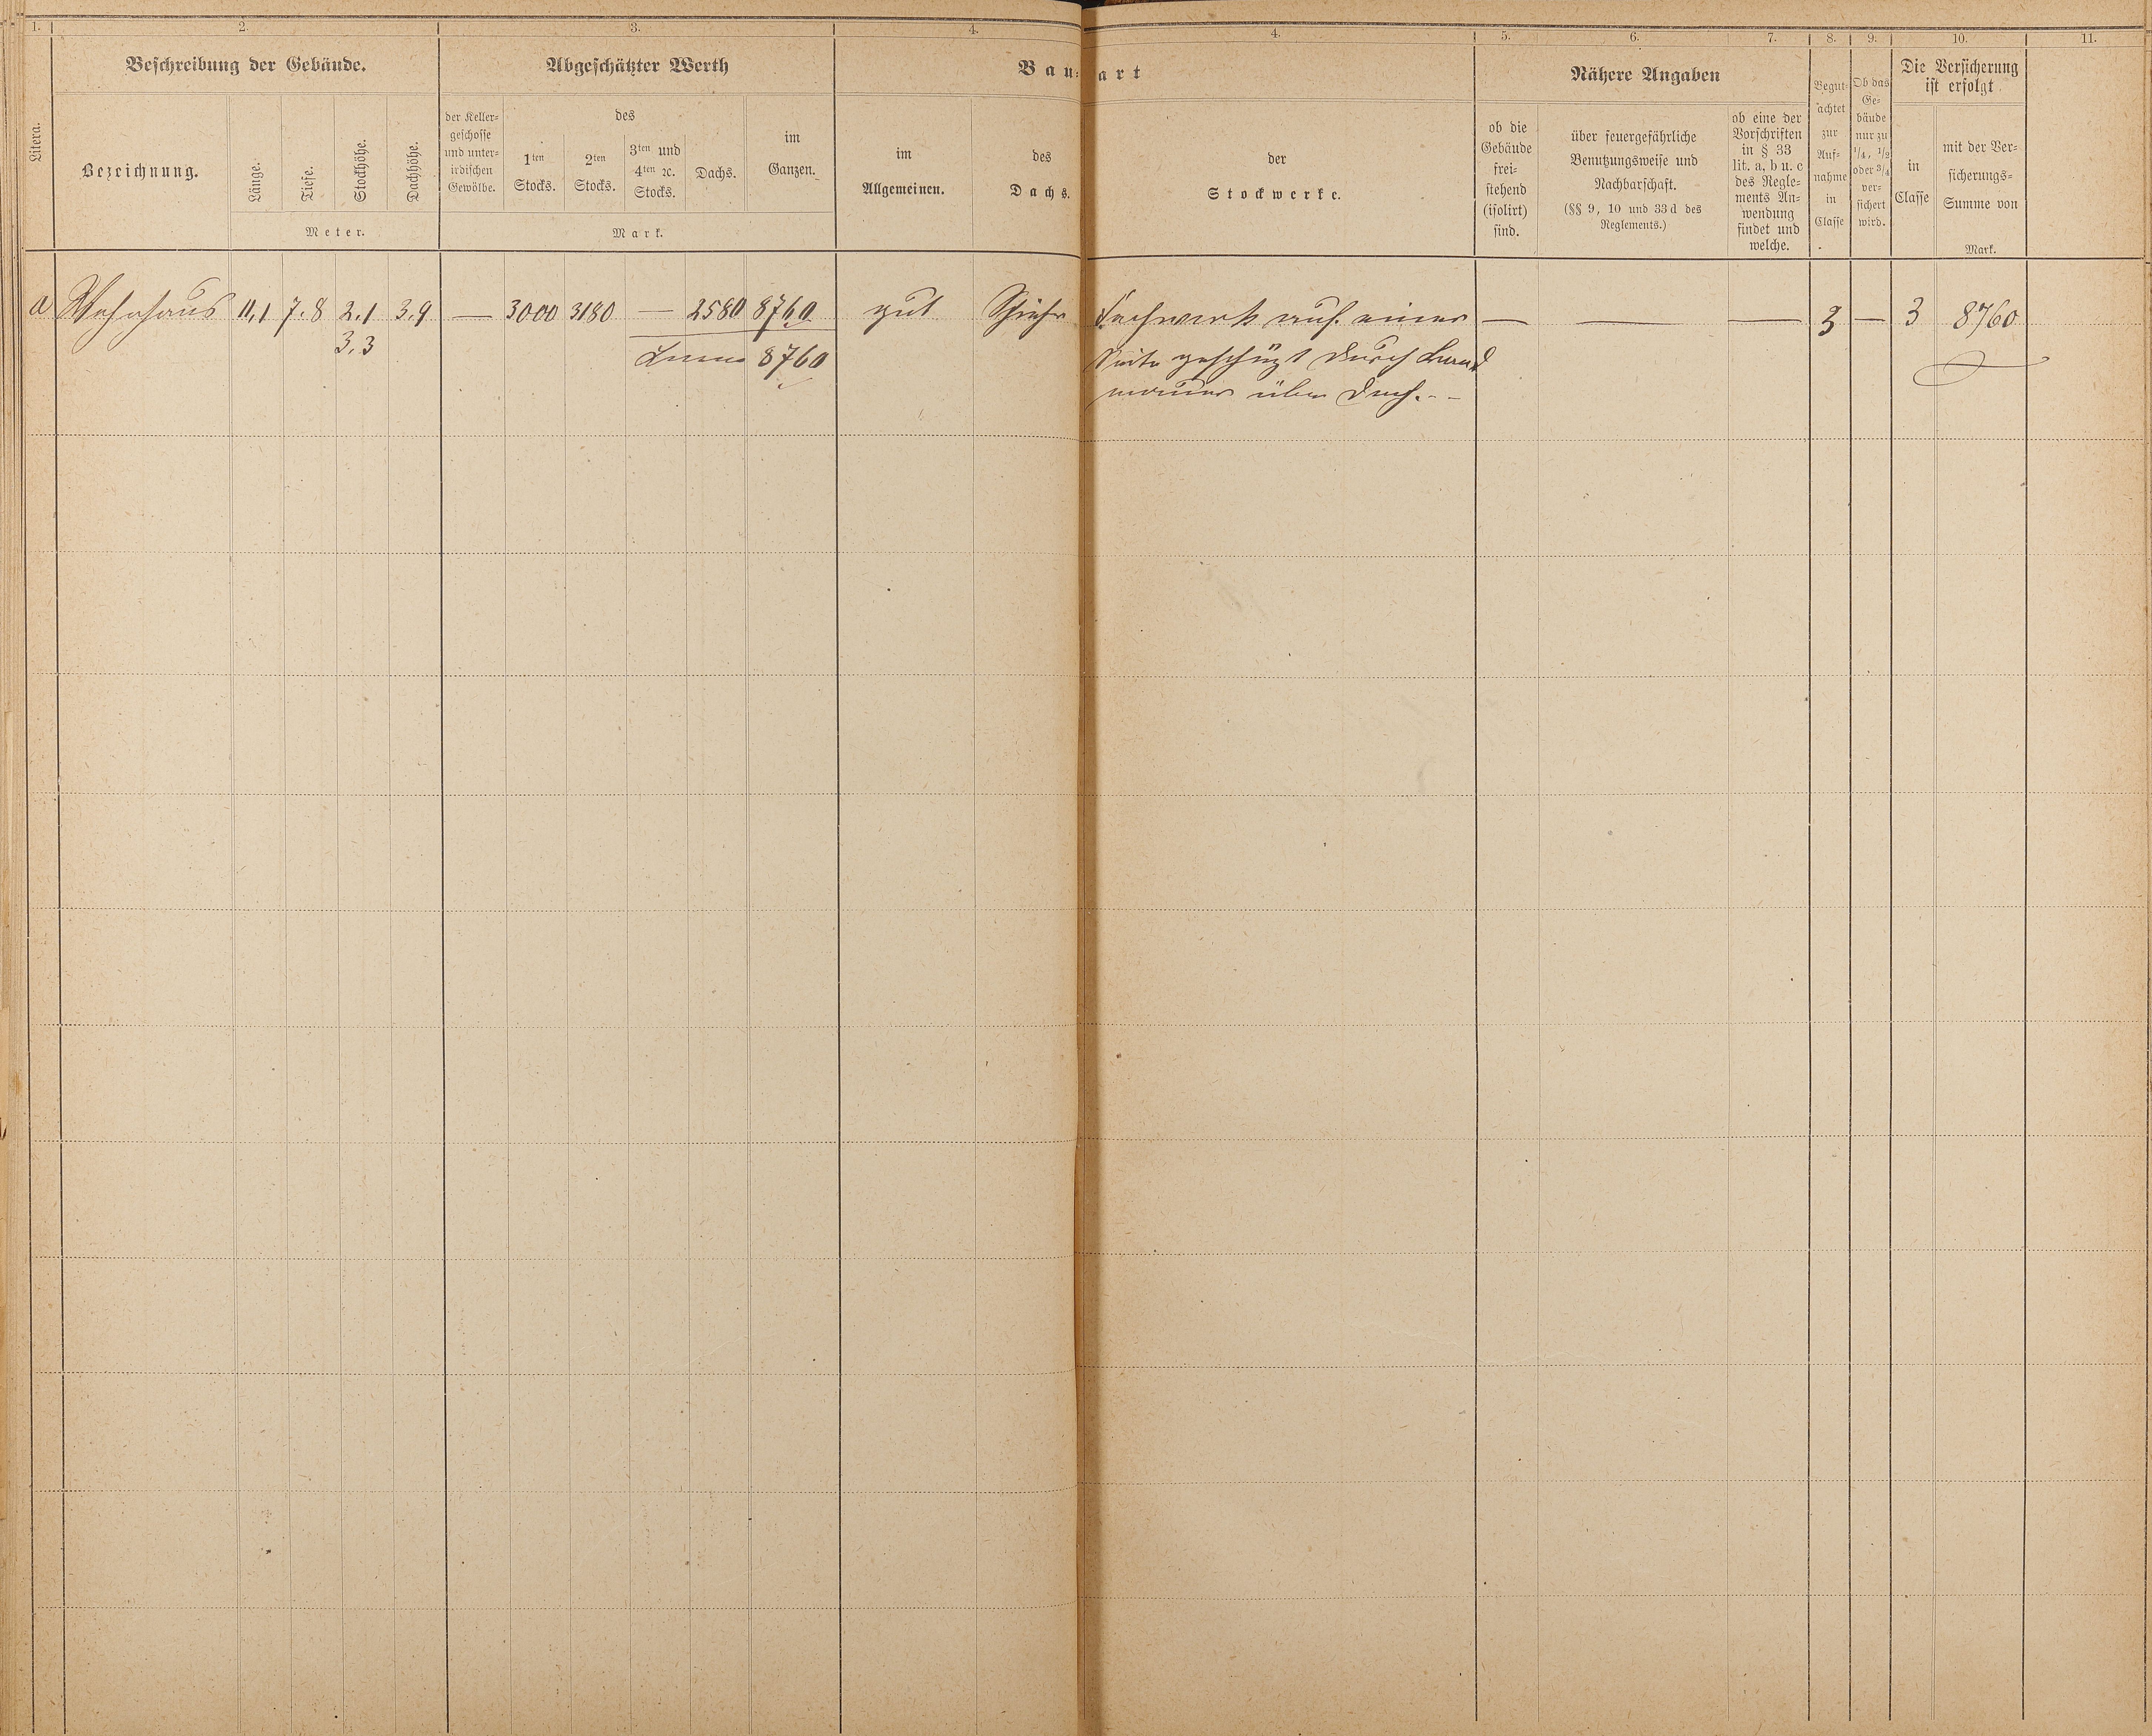 1. 2. 3. 4. 4. 5. 6. 7. 8. 9. 10. 11.
Litera.
Beschreibung der Gebäude.
Bezeichnung.
Länge.
Tiefe.
Stockhöhe.
Dachhöhe.
Meter.
Abgeschätzter Werth
der Keller-
geschosse
und unter-
irdischen
Gewölbe.
des
1ten
Stocks.
2ten
Stocks.
3ten und
4ten ꝛc.
Stocks.
Dachs.
im
Ganzen.
Mark.
Bau-art
im
Allgemeinen.
des
Dachs.
der
Stockwerke.
Nähere Angaben
ob die
Gebäude
frei-
stehend
(isolirt)
sind.
über feuergefährliche
Benutzungsweise und
Nachbarschaft.
(§§ 9, 10 und 33 d des
Reglements.)
ob eine der
Vorschriften
in § 33
lit. a, b u. c
des Regle-
ments An-
wendung
findet und
welche.
Begut-
achtet
zur
Auf-
nahme
in
Classe
Ob das
Ge-
bäude
nur zu
1/4, 1/2
oder 3/4
ver-
sichert
wird.
Die Versicherung
ist erfolgt
in
Classe
mit der Ver-
sicherungs-
Summe von
Mark.
a Wohnhaus 11,1 7.8 2.1 3.9 — 3000 3180 — 2580 8760 gut Fachwerk auf einer — — — 3 — 3 8760
3.3 8760 Seite geschüzt durch Brand
mauer über Dach.